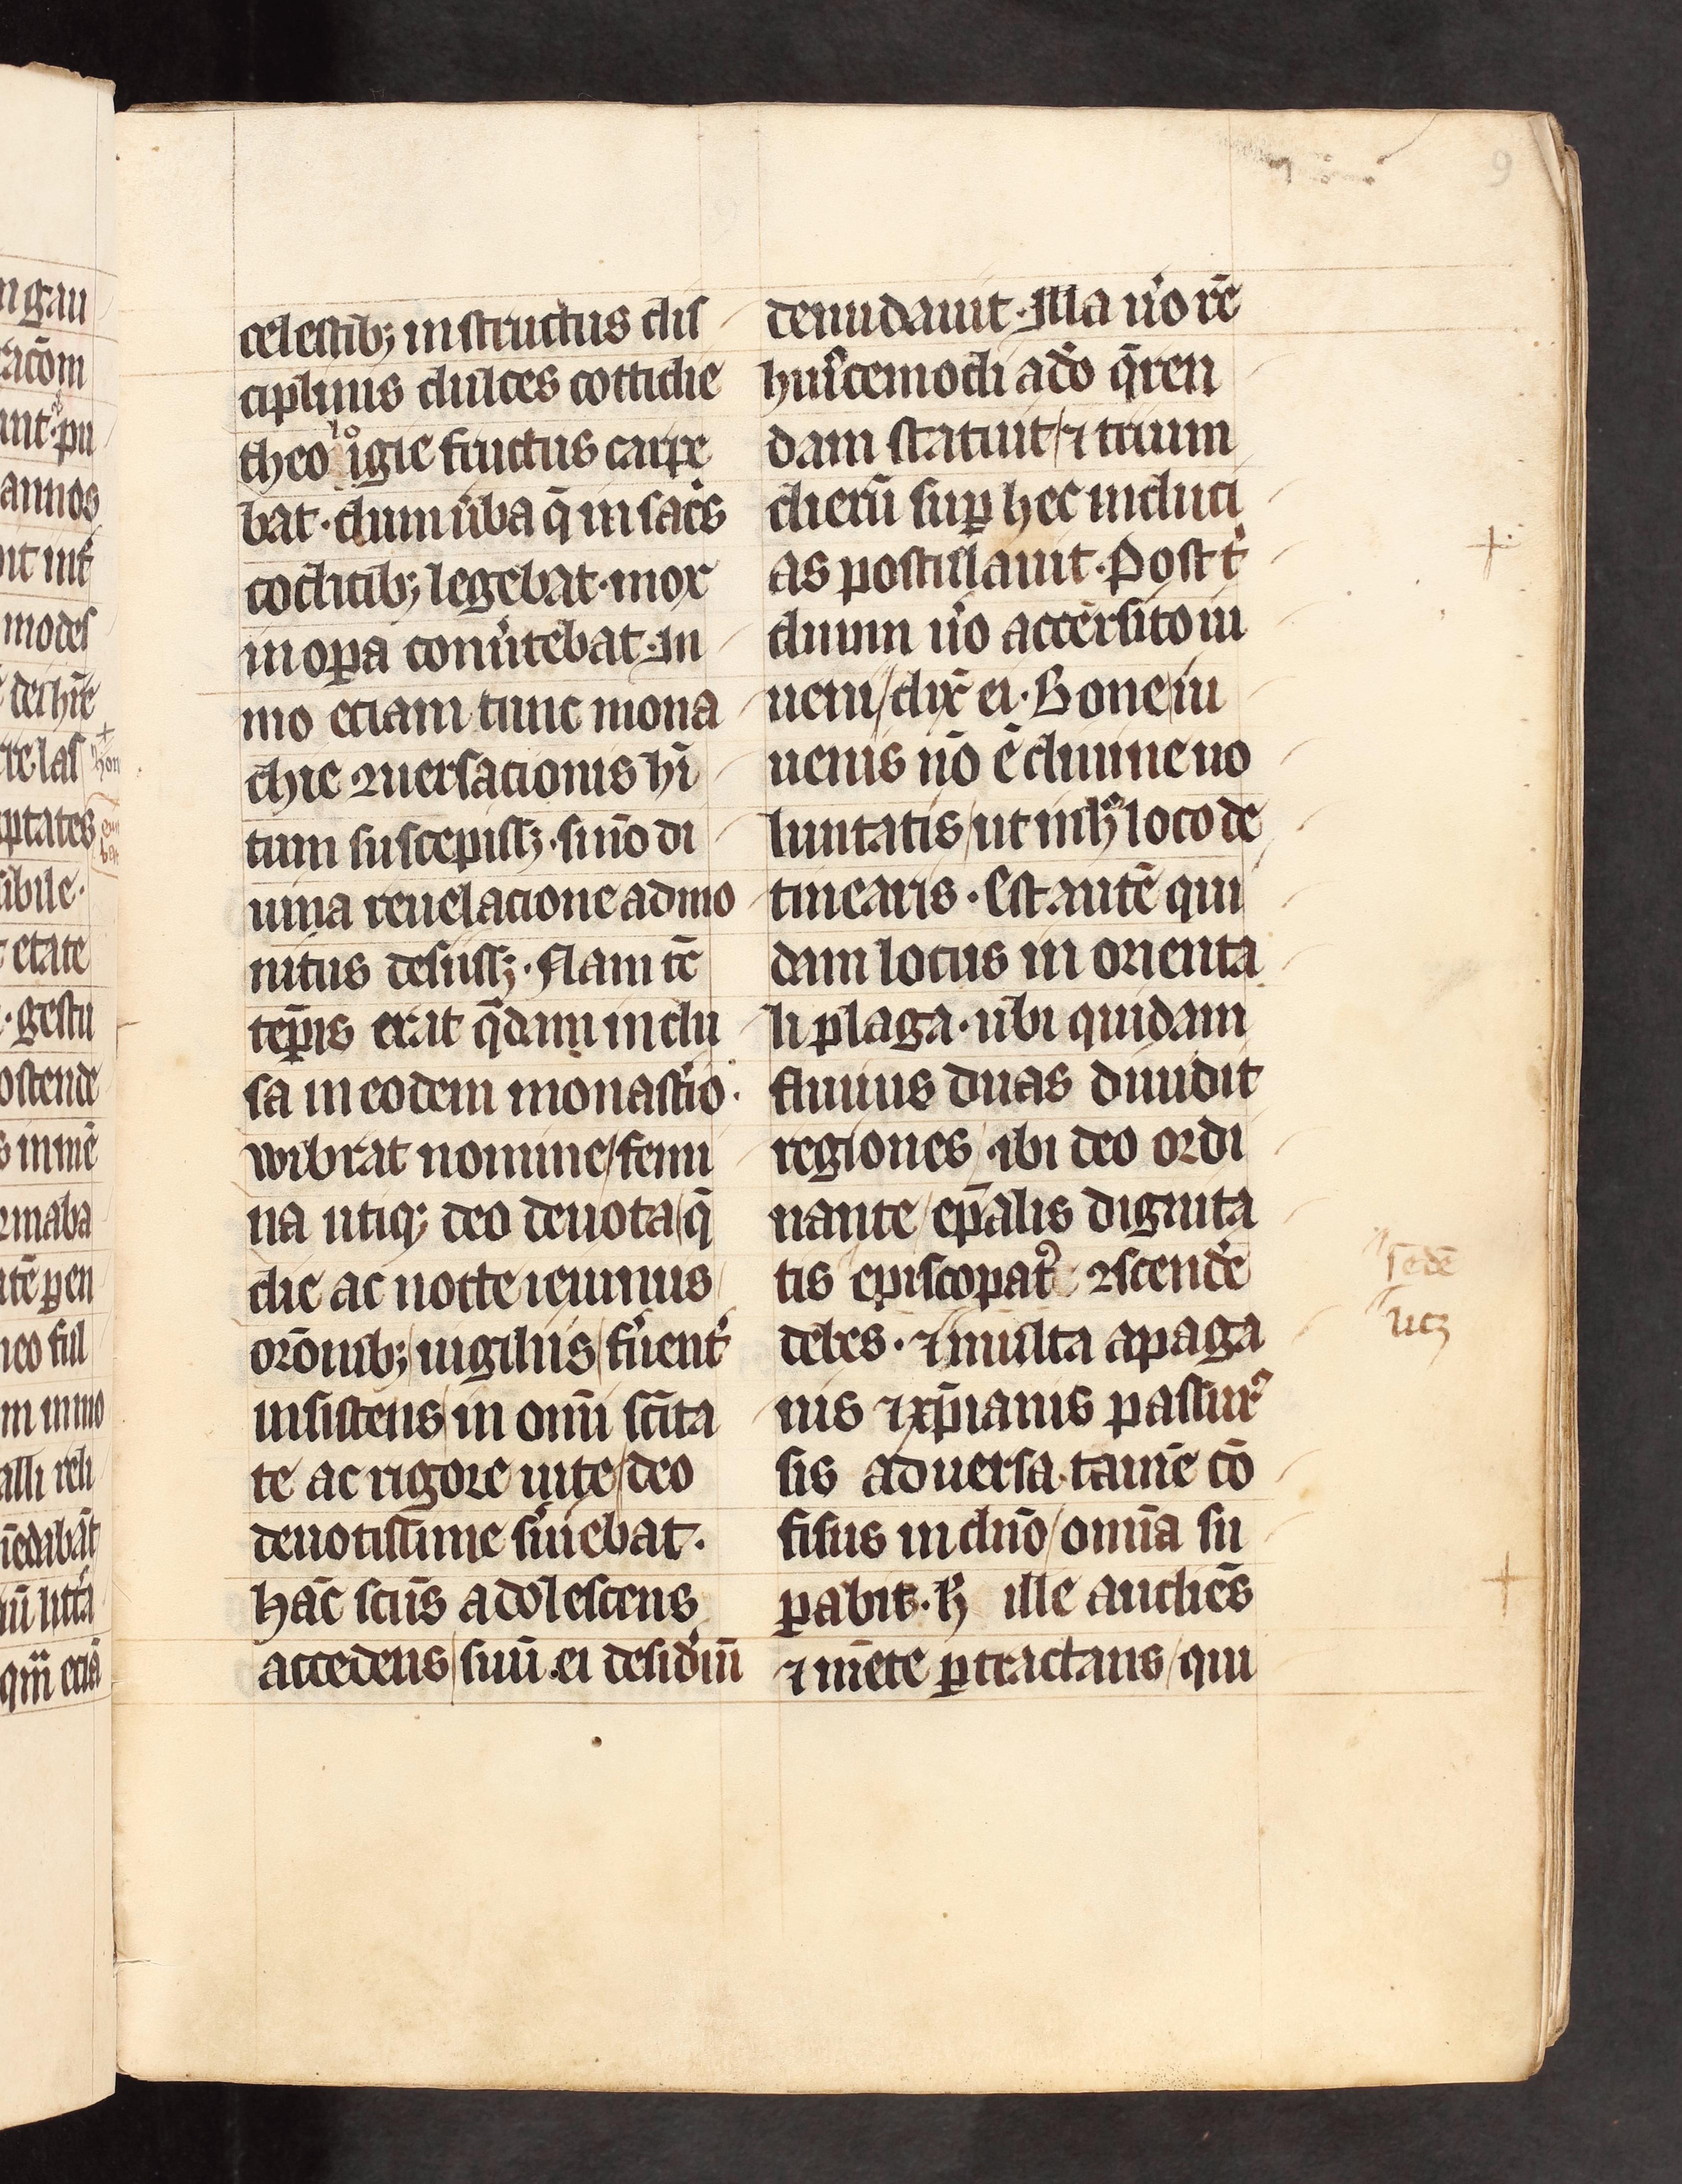 celestib; instructus dis
ciplinis dulces cottidie
theologie fructus carpe
bat · dum u̾ba q̄ in sac̾s
codicib; legebat · mox
in oꝑa conu̾tebat · Im
mo eciam tunc mona
chie ꝯuersacionis hī
tum suscepiss; · si nō di
uina reuelacione admo
nitus desiiss; · Nam cē
tēꝑis erat q̄dam inclu
sa in eodem monast̾io ·
wibrat nomine / femi
na utiq; deo deuota / q̄
die ac nocte ieiuniis /
orōnib; / uigiliis / f̾uent̾
insistens / in omī sc̄ita
te ac rigore uite / deo
deuotissime s̾uiebat ·
hāc sciēs adolescens
accedens / suū ei desid̾iū
denudauit · Illa u̾o rē
hui᷒cemodi a dō q̄ren
dam statuit / ⁊ trium
dierū suꝑ hec induci
as postulauit · Post t̾
duum u̾o accersito iu
ueni / dix̾ ei · Bone iu
uenis nō ē diuine uo
luntatis / ut in hͦ loco de
tinearis · Est autē qui
dam locus in orienta
li plaga · ubi quidam
fluuius duas diuidit
regiones / ibi deo ordi
nante / ep̄alis dignita
tis episcopat᷒ ꝯscende
debes · ⁊ multa a paga
nis ⁊ xp̄ianis passur᷒
sis aduersa · tamē cō
fisus in dnō / omīa su
ꝑabis · H̄ ille audiēs
⁊ mēte ꝑtractans / qui
sedē
ucz
9